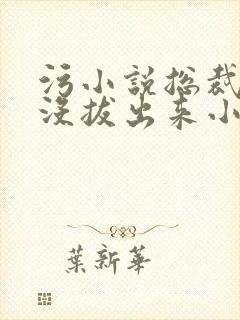 污小说总裁
没拔出来小
葉新華